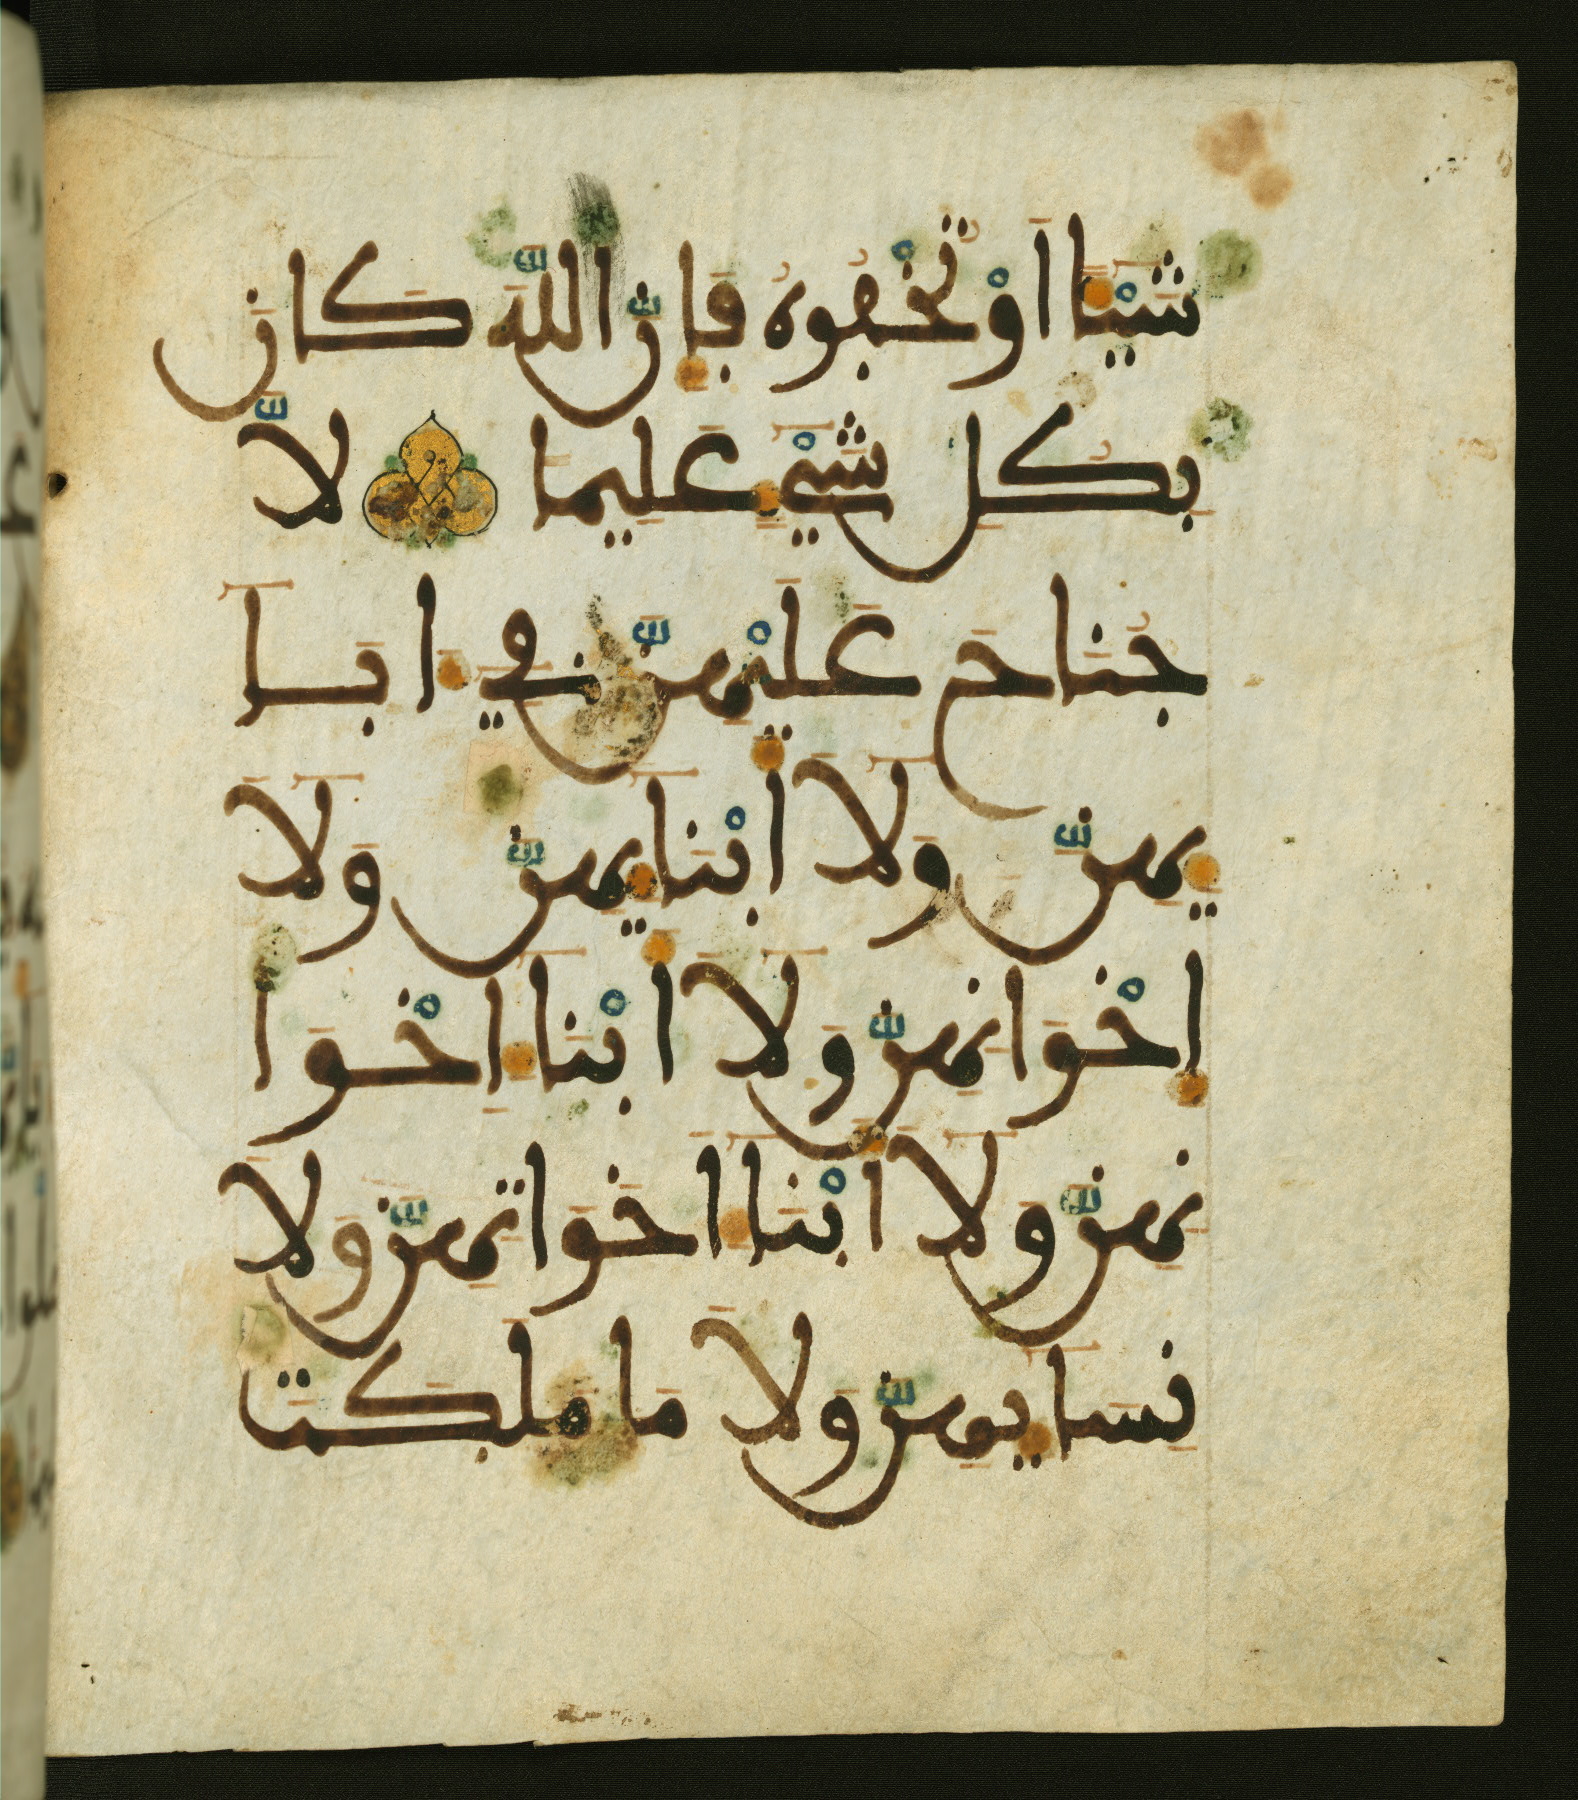 شَيْـًٔا اَوْ تُخْفُوهُ فَإِنَّ اَللَّهَ كَانَ
بِكُلِّ شَيْءٍ عَلِيمًا لَّا
جُنَاحَ عَلَيْهِنَّ فِي ءَابَا
ئِهِنَّ وَلَا أَبْنَائِهِنَّ وَلَا
إِخْوَانِهِنَّ وَلَا أَبْنَاءِ اخْوَا
نِهِنَّ وَلَا أَبْنَاءِ اَخَوَاتِهِنَّ وَلَا
نِسَائِهِنَّ وَلَا مَا مَلَكَتَ